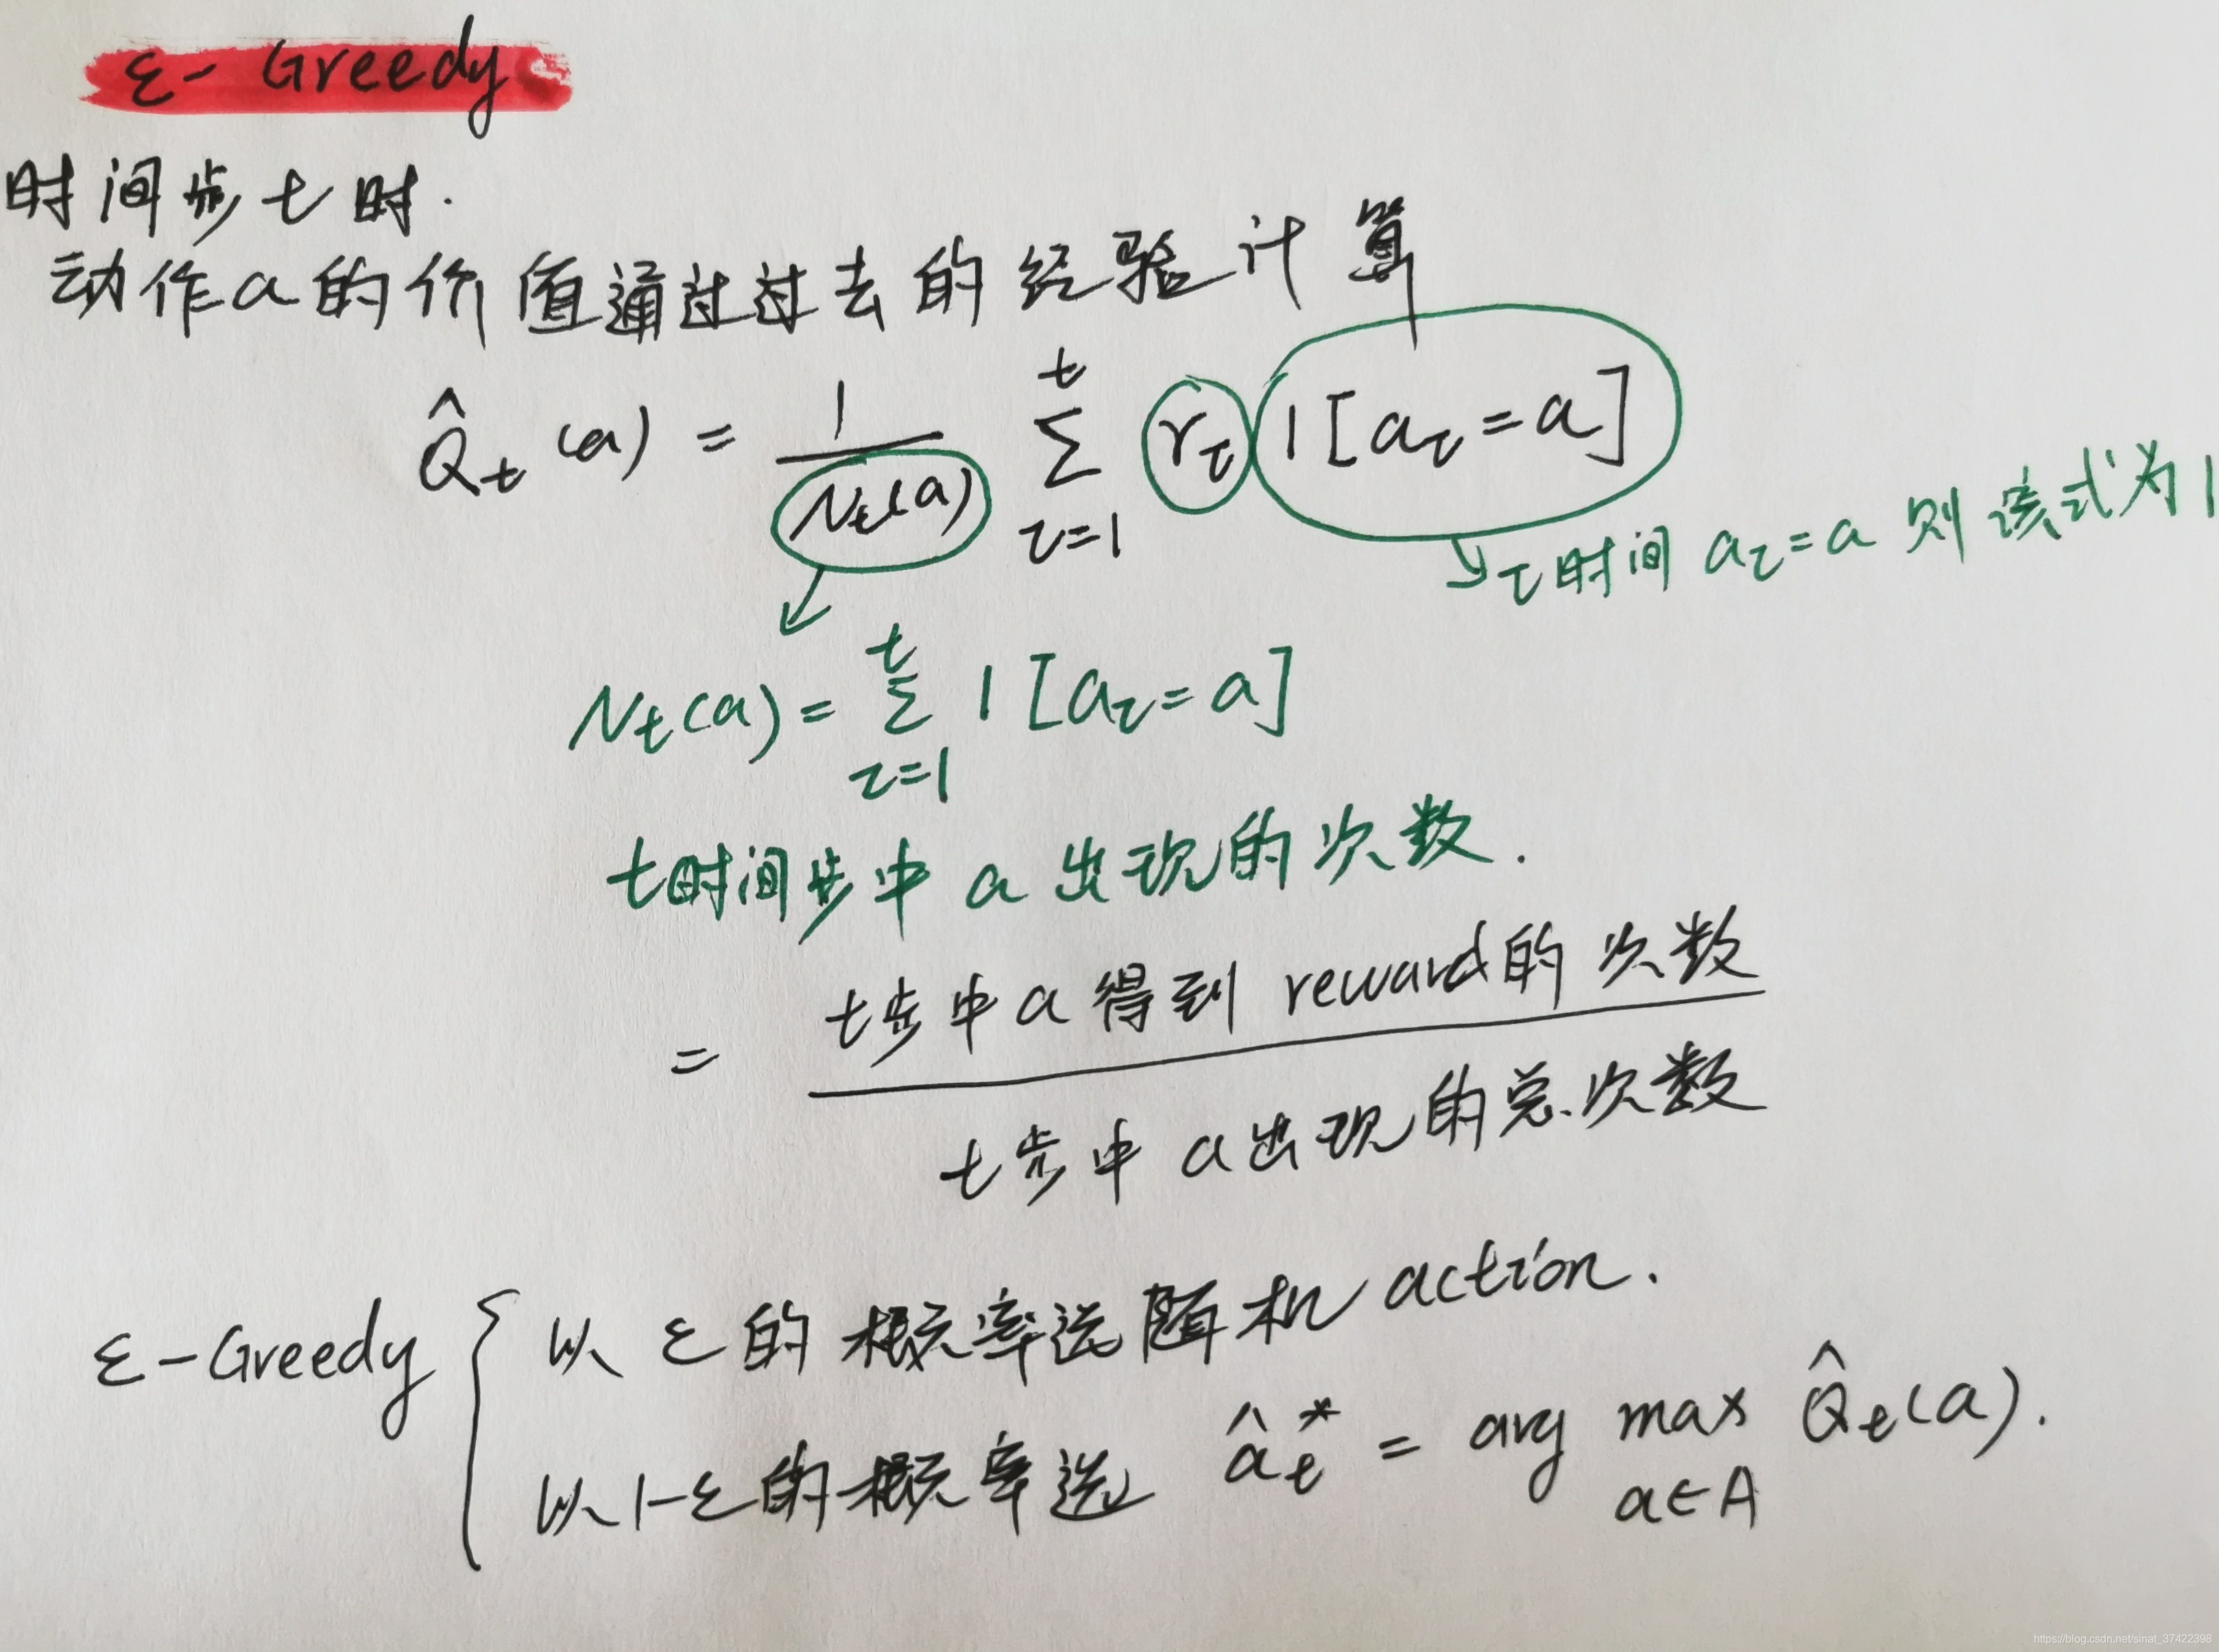 ε- Greedy
时间步t时.
动作a的价值通过过去的经验计算
Q̂_t(a) = 1/N_t(a) Σ_{τ=1}^{t} r_τ 1[a_τ=a]
τ时间 a_τ=a 则该式为1
N_t(a) = Σ_{τ=1}^{t} 1[a_τ=a]
t时间步中 a 出现的次数.
= t步中a得到 reward的次数
t步中 a出现的总次数
ε-Greedy { 以 ε 的概率选随机 action.
以1-ε的概率选 â_t^* = arg max_{a∈A} Q̂_t(a).
https://blog.csdn.net/sinat_37422398